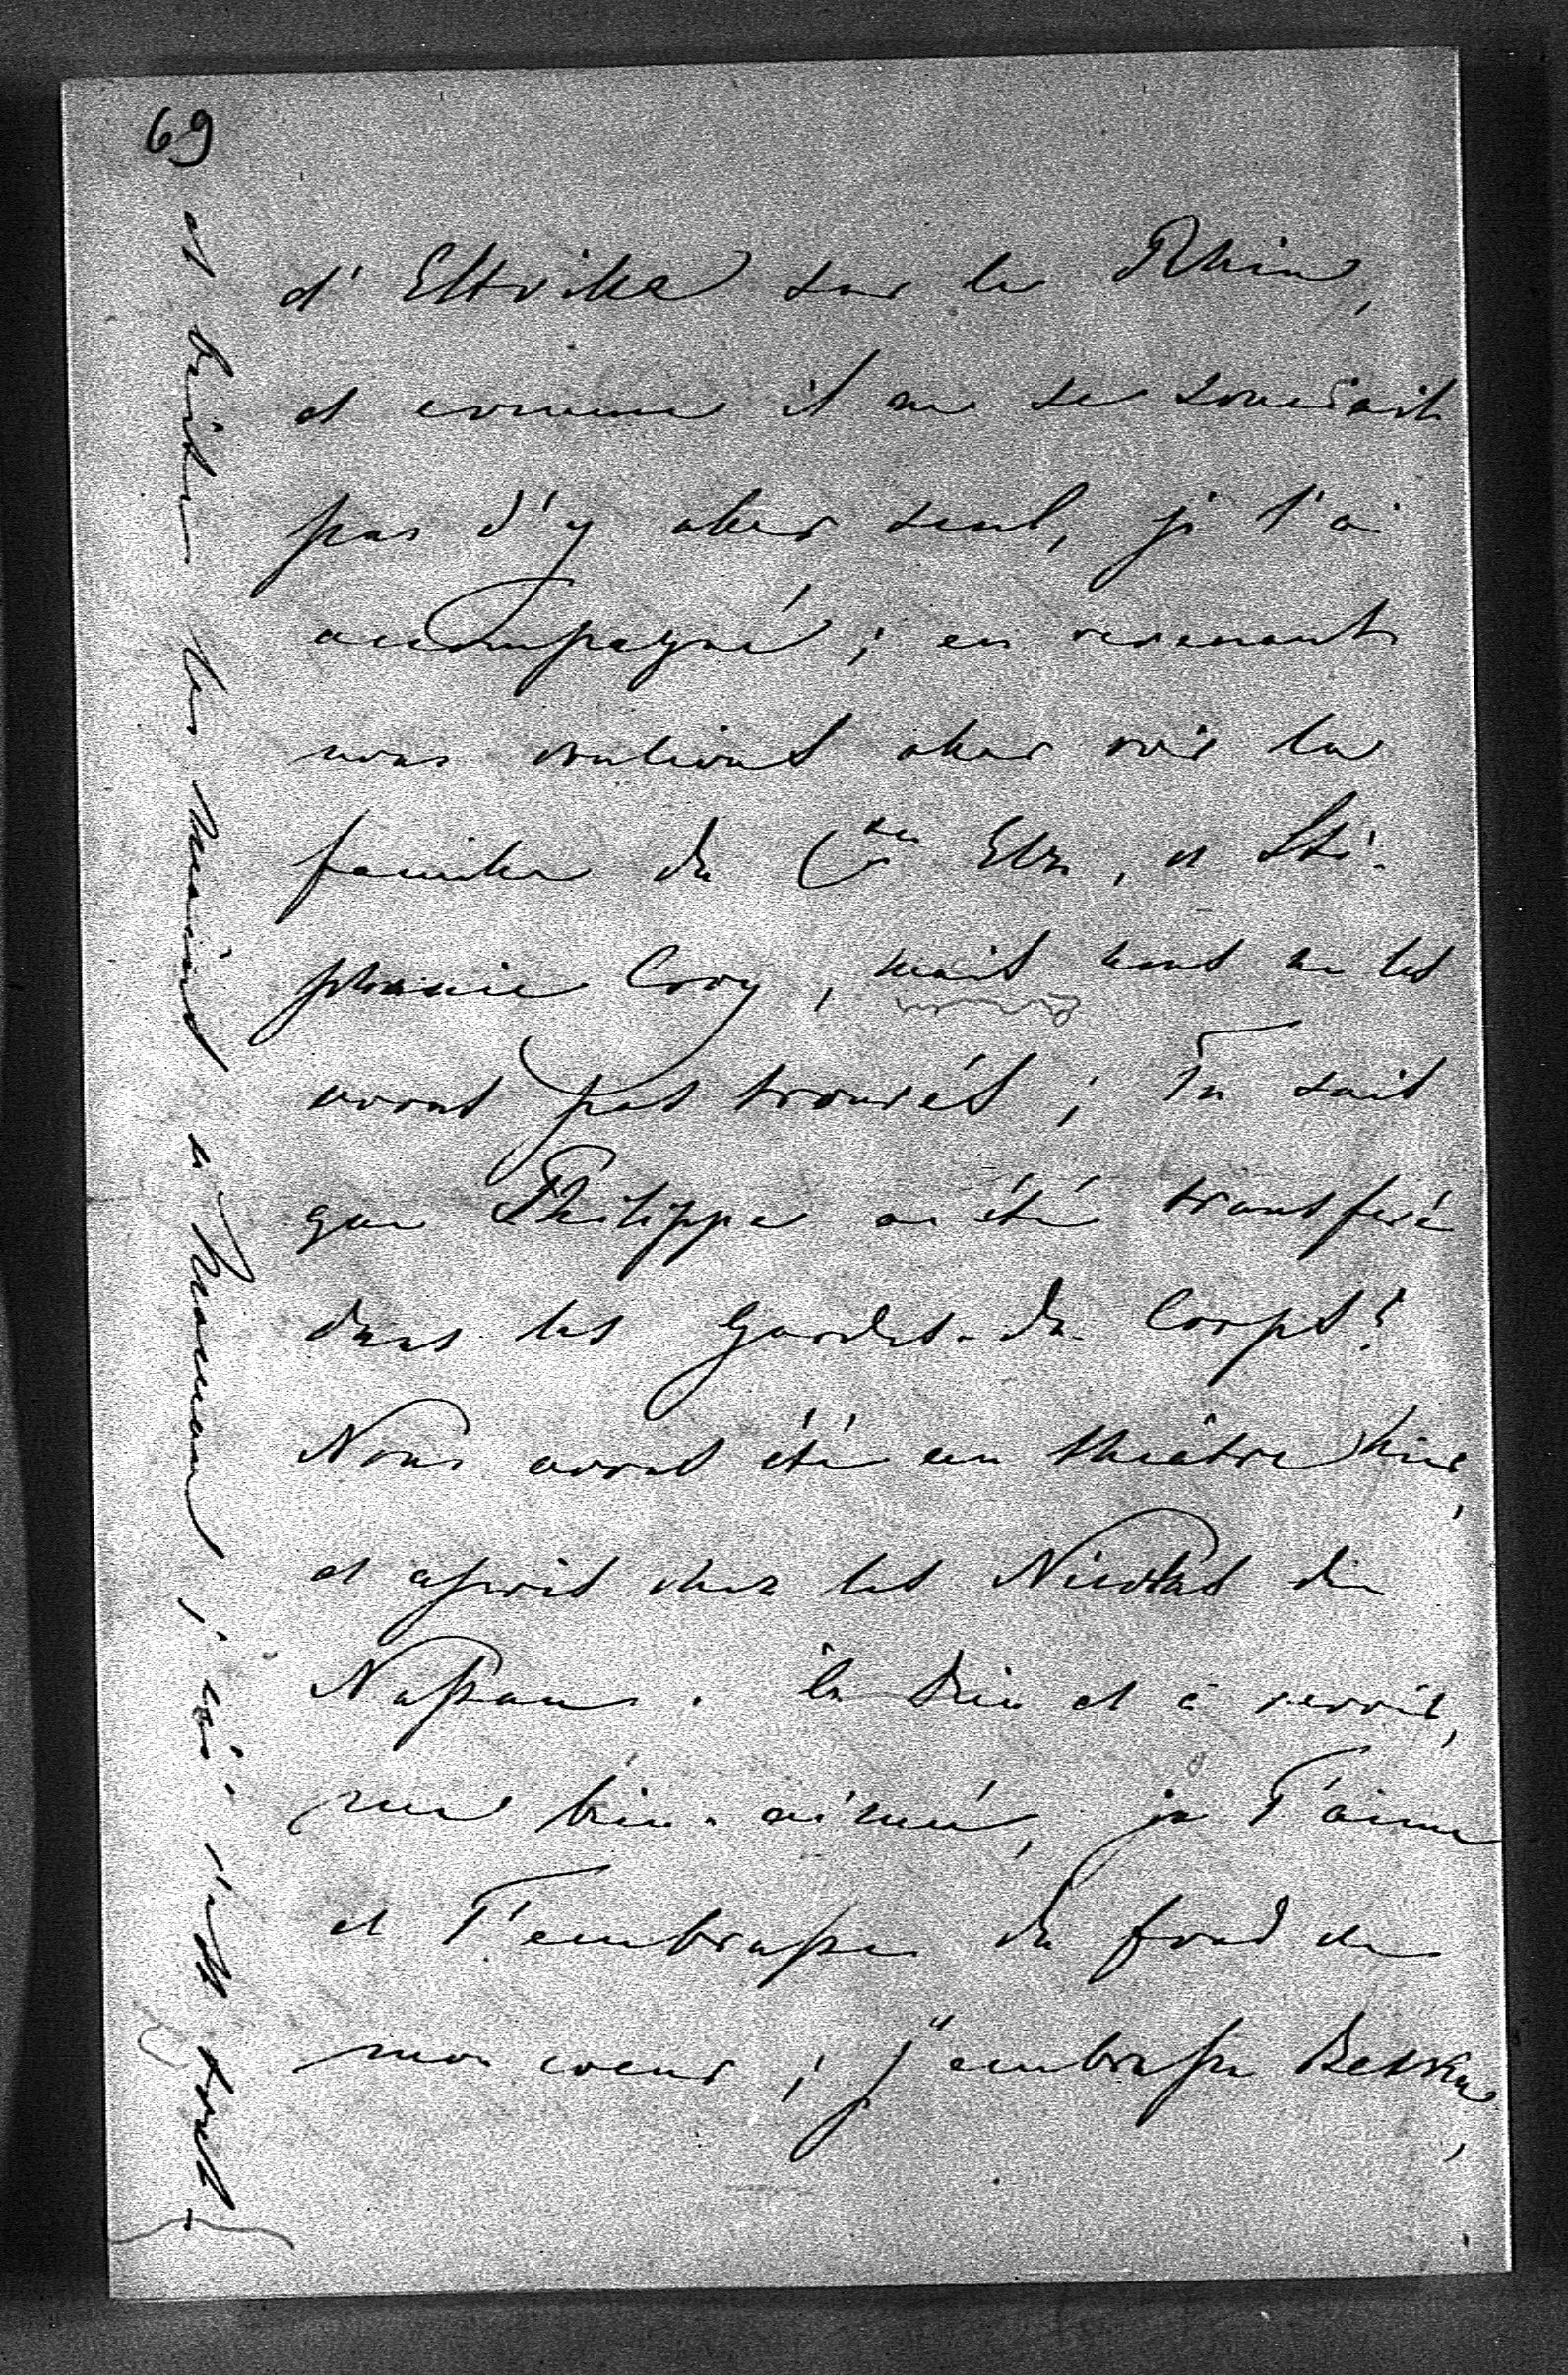 69
d'Eltville sur le Rhin,
et comme il ne se souciait
pas d'y aller seul, je l'ai
accompagné ; en revenant
nous voulions aller voir la
famille du Cte Eltz, et Sté-
phanie Covy, mais nous ne les
avons pas trouvés ; Tu sais
que Philippe a été transferé
dans les Gardes-du-Corps?
Nous avons été au théâtre hier,
et après chez les Nicolas de
Nassau. à Dieu et à revoir,
mon bien-aimé, je T'aime
et T'embrasse du fond de
mon coeur ; j'embrasse
et baise les mains à Maman,